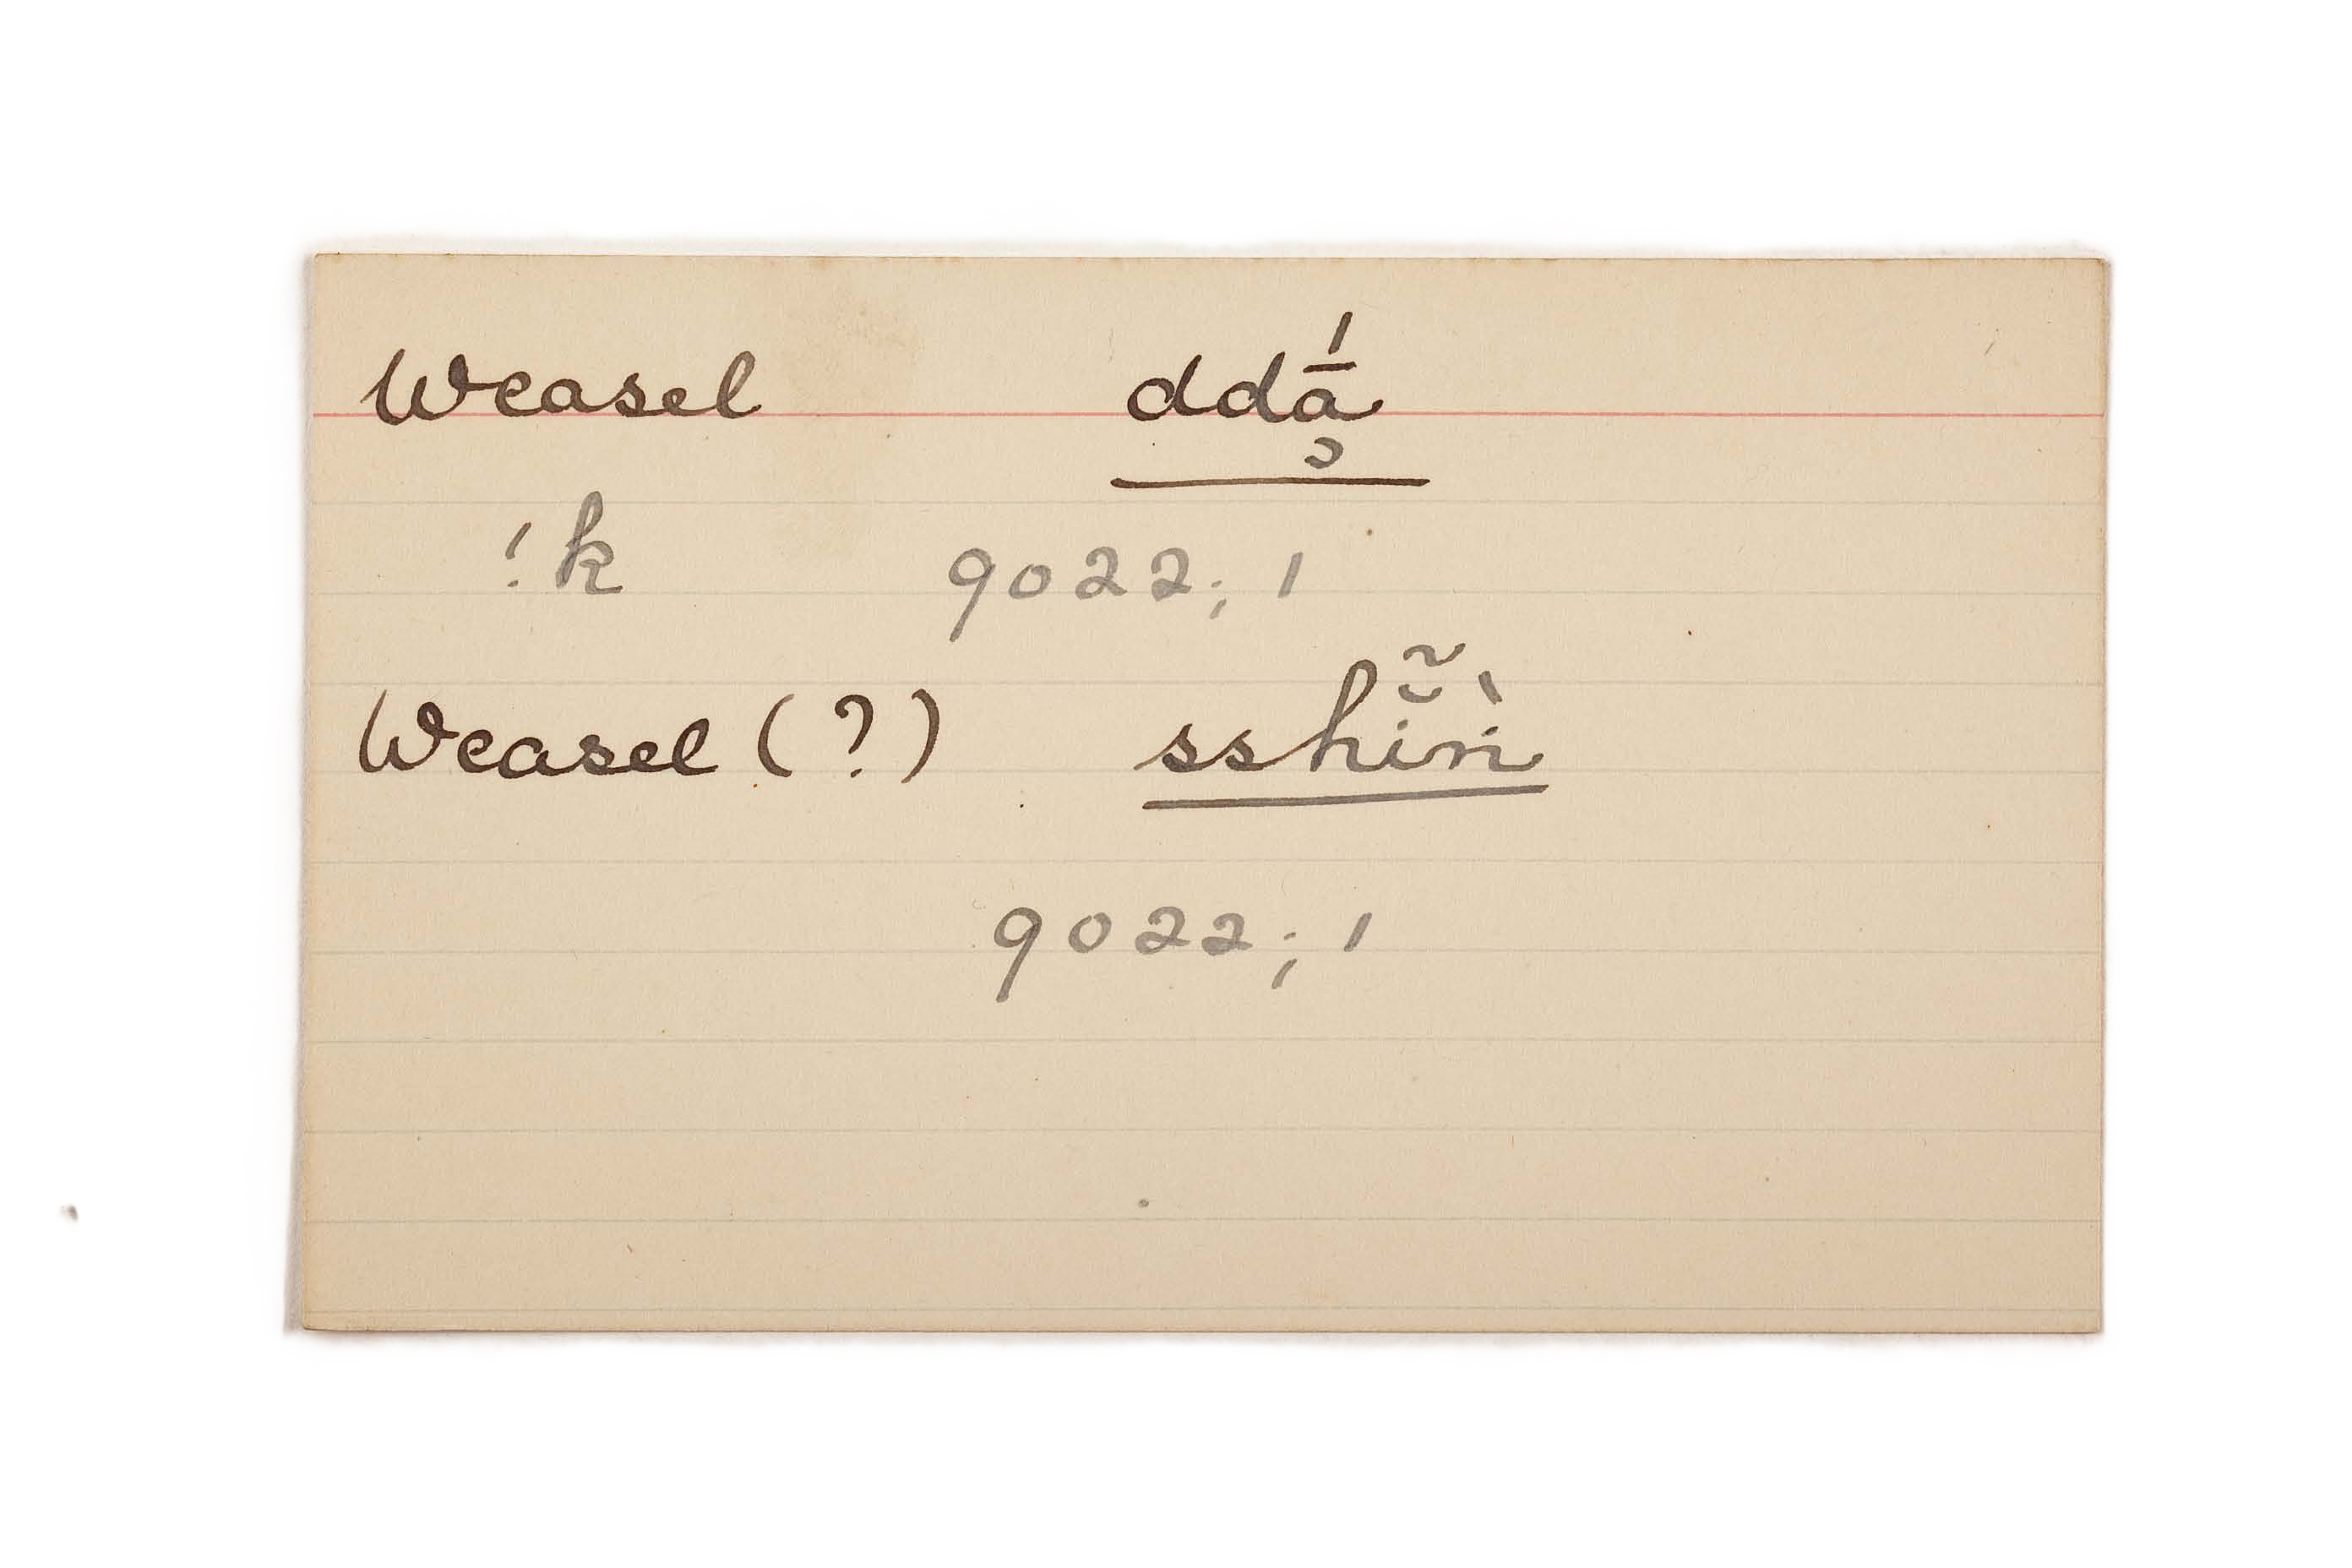 Weasel ddā̹́
!k 9022; 1
Weasel (?) sshĭ̃rì
9022; 1